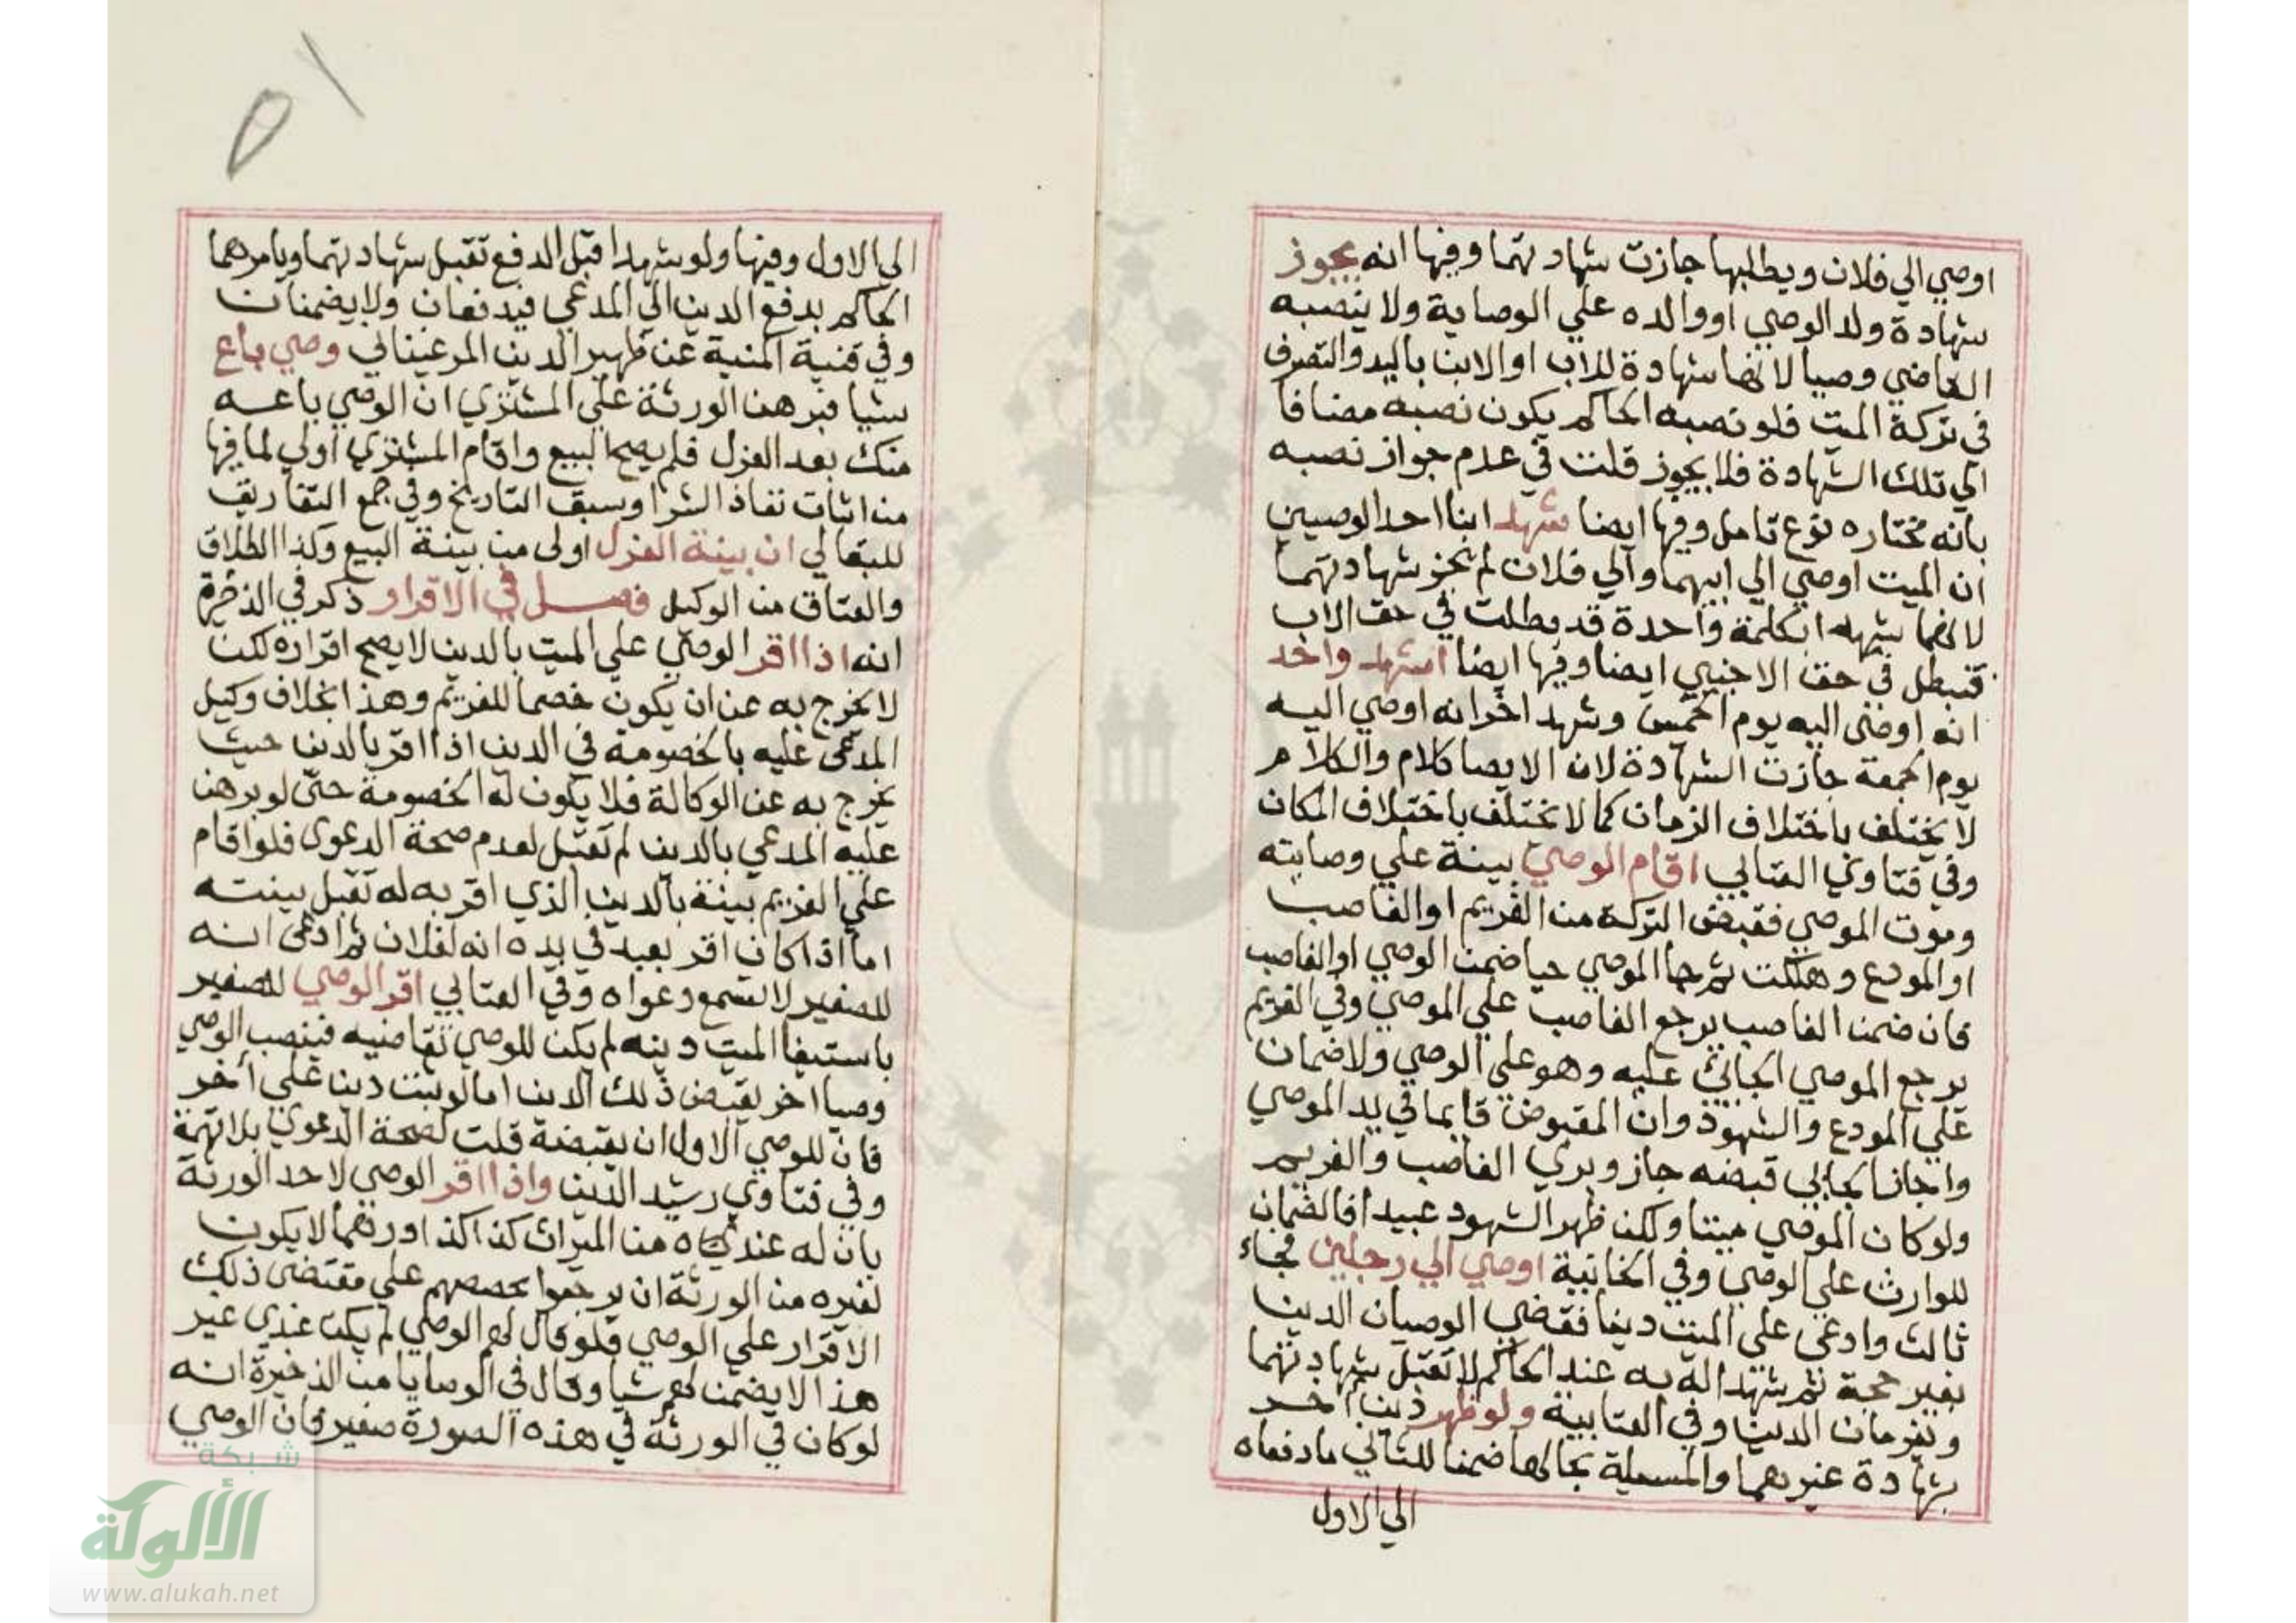 اوصي الي فلان ويطلبها جازت شهادتهما وفيها انه يجوز
شهادة ولد الوصي او والده علي الوصاية ولا ينصبه
القاضي وصيا لانها شهادة للاب او الابن باليد والتصرف
في تركة الميت فلو نصبه الحاكم يكون نصبه مضافا
الي تلك الشهادة فلا يجوز قلت في عدم جواز نصبه
بانه مختاره نوع تامل وفيها ايضا شهد ابنا احد الوصيين
ان الميت اوصي الي ابيهما والي فلان لم تجز شهادتهما
لانهما شهدا بكلمة واحدة قد بطلت في حق الاب
فتبطل في حق الاجنبي ايضا وفيها ايضا اشهد واحد
انه اوصى اليه يوم الخميس وشهد اخر انه اوصي اليه
يوم الجمعة جازت الشهادة لان الايصا كلام والكلام
لا يختلف باختلاف الزمان كما لا يختلف باختلاف المكان
وفي فتاوي العتابي اقام الوصي بينة علي وصايته
وموت الموصي فقبض التركة من الغريم او الغاصب
او المودع وهلكت ثم جا الموصي حيا ضمن الوصي او الغاصب
فان ضمن الغاصب يرجع الغاصب علي الموصي وفي الغريم
يرجع الموصي الجائي عليه وهو علي الوصي ولا ضمان
علي المودع والشهود وان المقبوض قايما في يد الموصي
واجاز الجائي قبضه جاز وبري الغاصب والغريم
ولو كان الموصي ميتا ولكن ظهر الشهود عبيدا فالضمان
للوارث علي الوصي وفي الخانية اوصي الي رجلين فجاء
ثالث وادعي علي الميت دينا فقضي الوصيان الدين
بغير حجة ثم شهدا له به عند الحاكم لا تقبل شهادتهما
ويغرمان الدين وفي العتابية ولو ظهر دين اخر
بشهادة غيرهما والمسئلة بحالها ضمنا للثاني ما دفعاه
الي الاول
٥١
الي الاول وفيها ولو شهدا قبل الدفع تقبل شهادتهما ويامرهما
الحاكم بدفع الدين الي المدعي فيدفعان ولا يضمنان
وفي قنية المنية عن ظهير الدين المرغيناني وصي باع
شيا فبرهن الورثة علي المشتري ان الوصي باعه
منك بعد العزل فلم يصح البيع واقام المشتري اولي لما فيها
من اثبات نفاذ الشرا وسبق التاريخ وفي جمع التفاريق
للبقالي ان بينة العزل اولى من بينة البيع وكذا الطلاق
والعتاق من الوكيل فصل في الاقرار ذكر في الذخيرة
انه اذا اقر الوصي علي الميت بالدين لا يصح اقراره لكن
لا يخرج به عن ان يكون خصما للغريم وهذا بخلاف وكيل
المدعى عليه بالخصومة في الدين اذا اقر بالدين حيث
يخرج به عن الوكالة فلا يكون له الخصومة حتى لو برهن
عليه المدعي بالدين لم تقبل لعدم صحة الدعوى فلو اقام
علي الغريم بينة بالدين الذي اقر به له تقبل بينته
اما اذا كان اقر بعبد في يده انه لفلان ثم ادعى انه
للصغير لا تسمع دعواه وفي العتابي اقر الوصي للصغير
باستيفا الميت دينه لم يكن للوصي تقاضيه فينصب الوصي
وصيا اخر يقبض ذلك الدين اما لو يثبت دينا علي اخر
فان للوصي الاول ان يقبضه قلت لصحة الدعوي بلا تهمة
وفي فتاوي رشيد الدين واذا اقر الوصي لاحد الورثة
بان له عندي من الميراث كذا كذا درهما لا يكون
لغيره من الورثة ان يرجعوا بحصصهم علي مقتضى ذلك
الاقرار علي الوصي فلو قال لهم الوصي لم يكن عندي غير
هذا لا يضمن لهم شيا وقال في الوصايا من الذخيرة انه
لو كان في الورثة في هذه الصورة صغير فان الوصي
شبكة
الألوكة
www.alukah.net